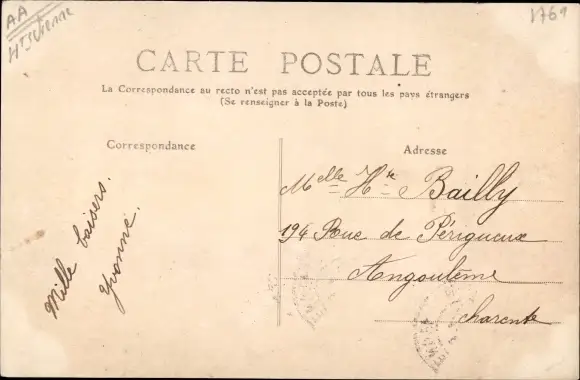 AA
Hte Vienne
1769
CARTE POSTALE
La Correspondance au recto n'est pas acceptée par tous les pays étrangers
(Se renseigner à la Poste)
Correspondance
Adresse
Mille baisers.
Yvonne.
Melle Hte Bailly
194 Rue de Périgueux
Angoulême
Charente